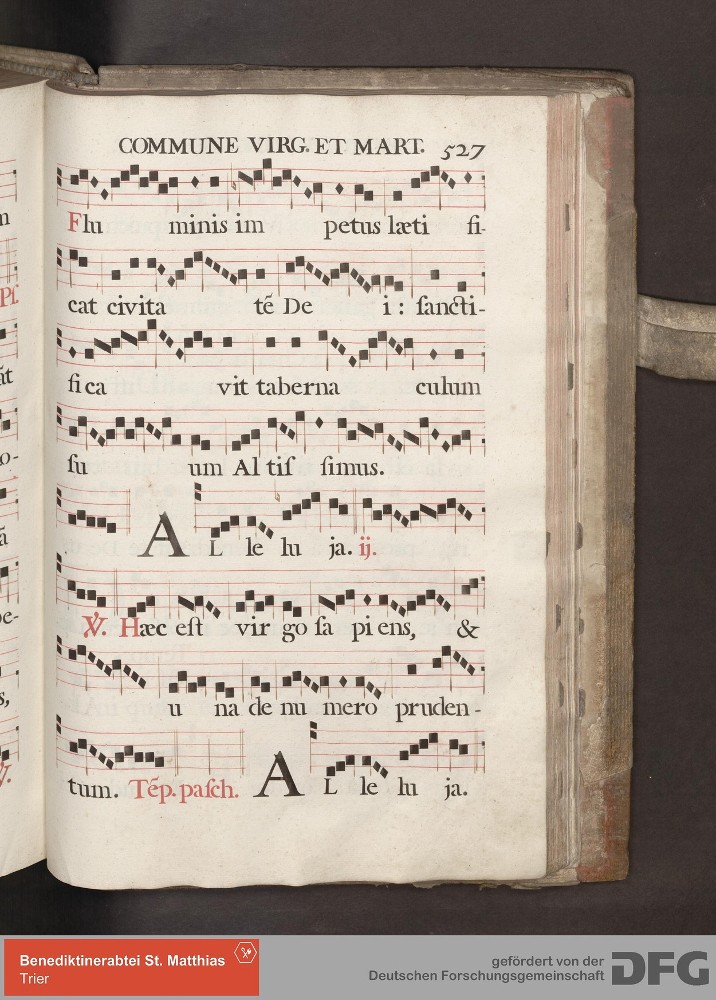 COMMUNE VIRG. ET MART. 527
Flu minis im petus læti fi-
cat civita tē De i: ſancti-
fica vit taberna culum
ſu um Al tiſ ſimus.
AL le lu ja. ij.
℣. Hæc eſt vir go ſa pi ens, &
u na de nu mero pruden-
tum. Tēp. paſch. AL le lu ja.
Benediktinerabtei St. Matthias
Trier
gefördert von der
Deutschen Forschungsgemeinschaft DFG